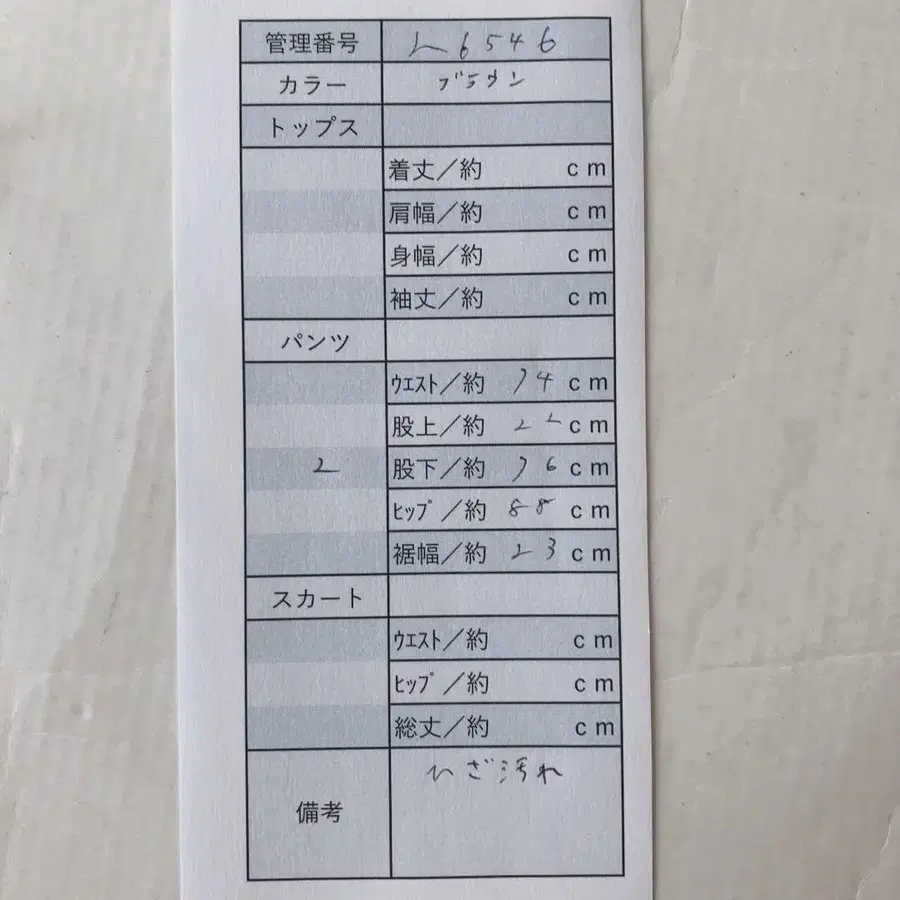 管理番号 L6546
カラー ブラウン
トップス
着丈／約 cm
肩幅／約 cm
身幅／約 cm
袖丈／約 cm
パンツ
ウエスト／約 74 cm
股上／約 22 cm
2 股下／約 76 cm
ヒップ／約 88 cm
裾幅／約 23 cm
スカート
ウエスト／約 cm
ヒップ／約 cm
総丈／約 cm
備考 ひざ汚れ